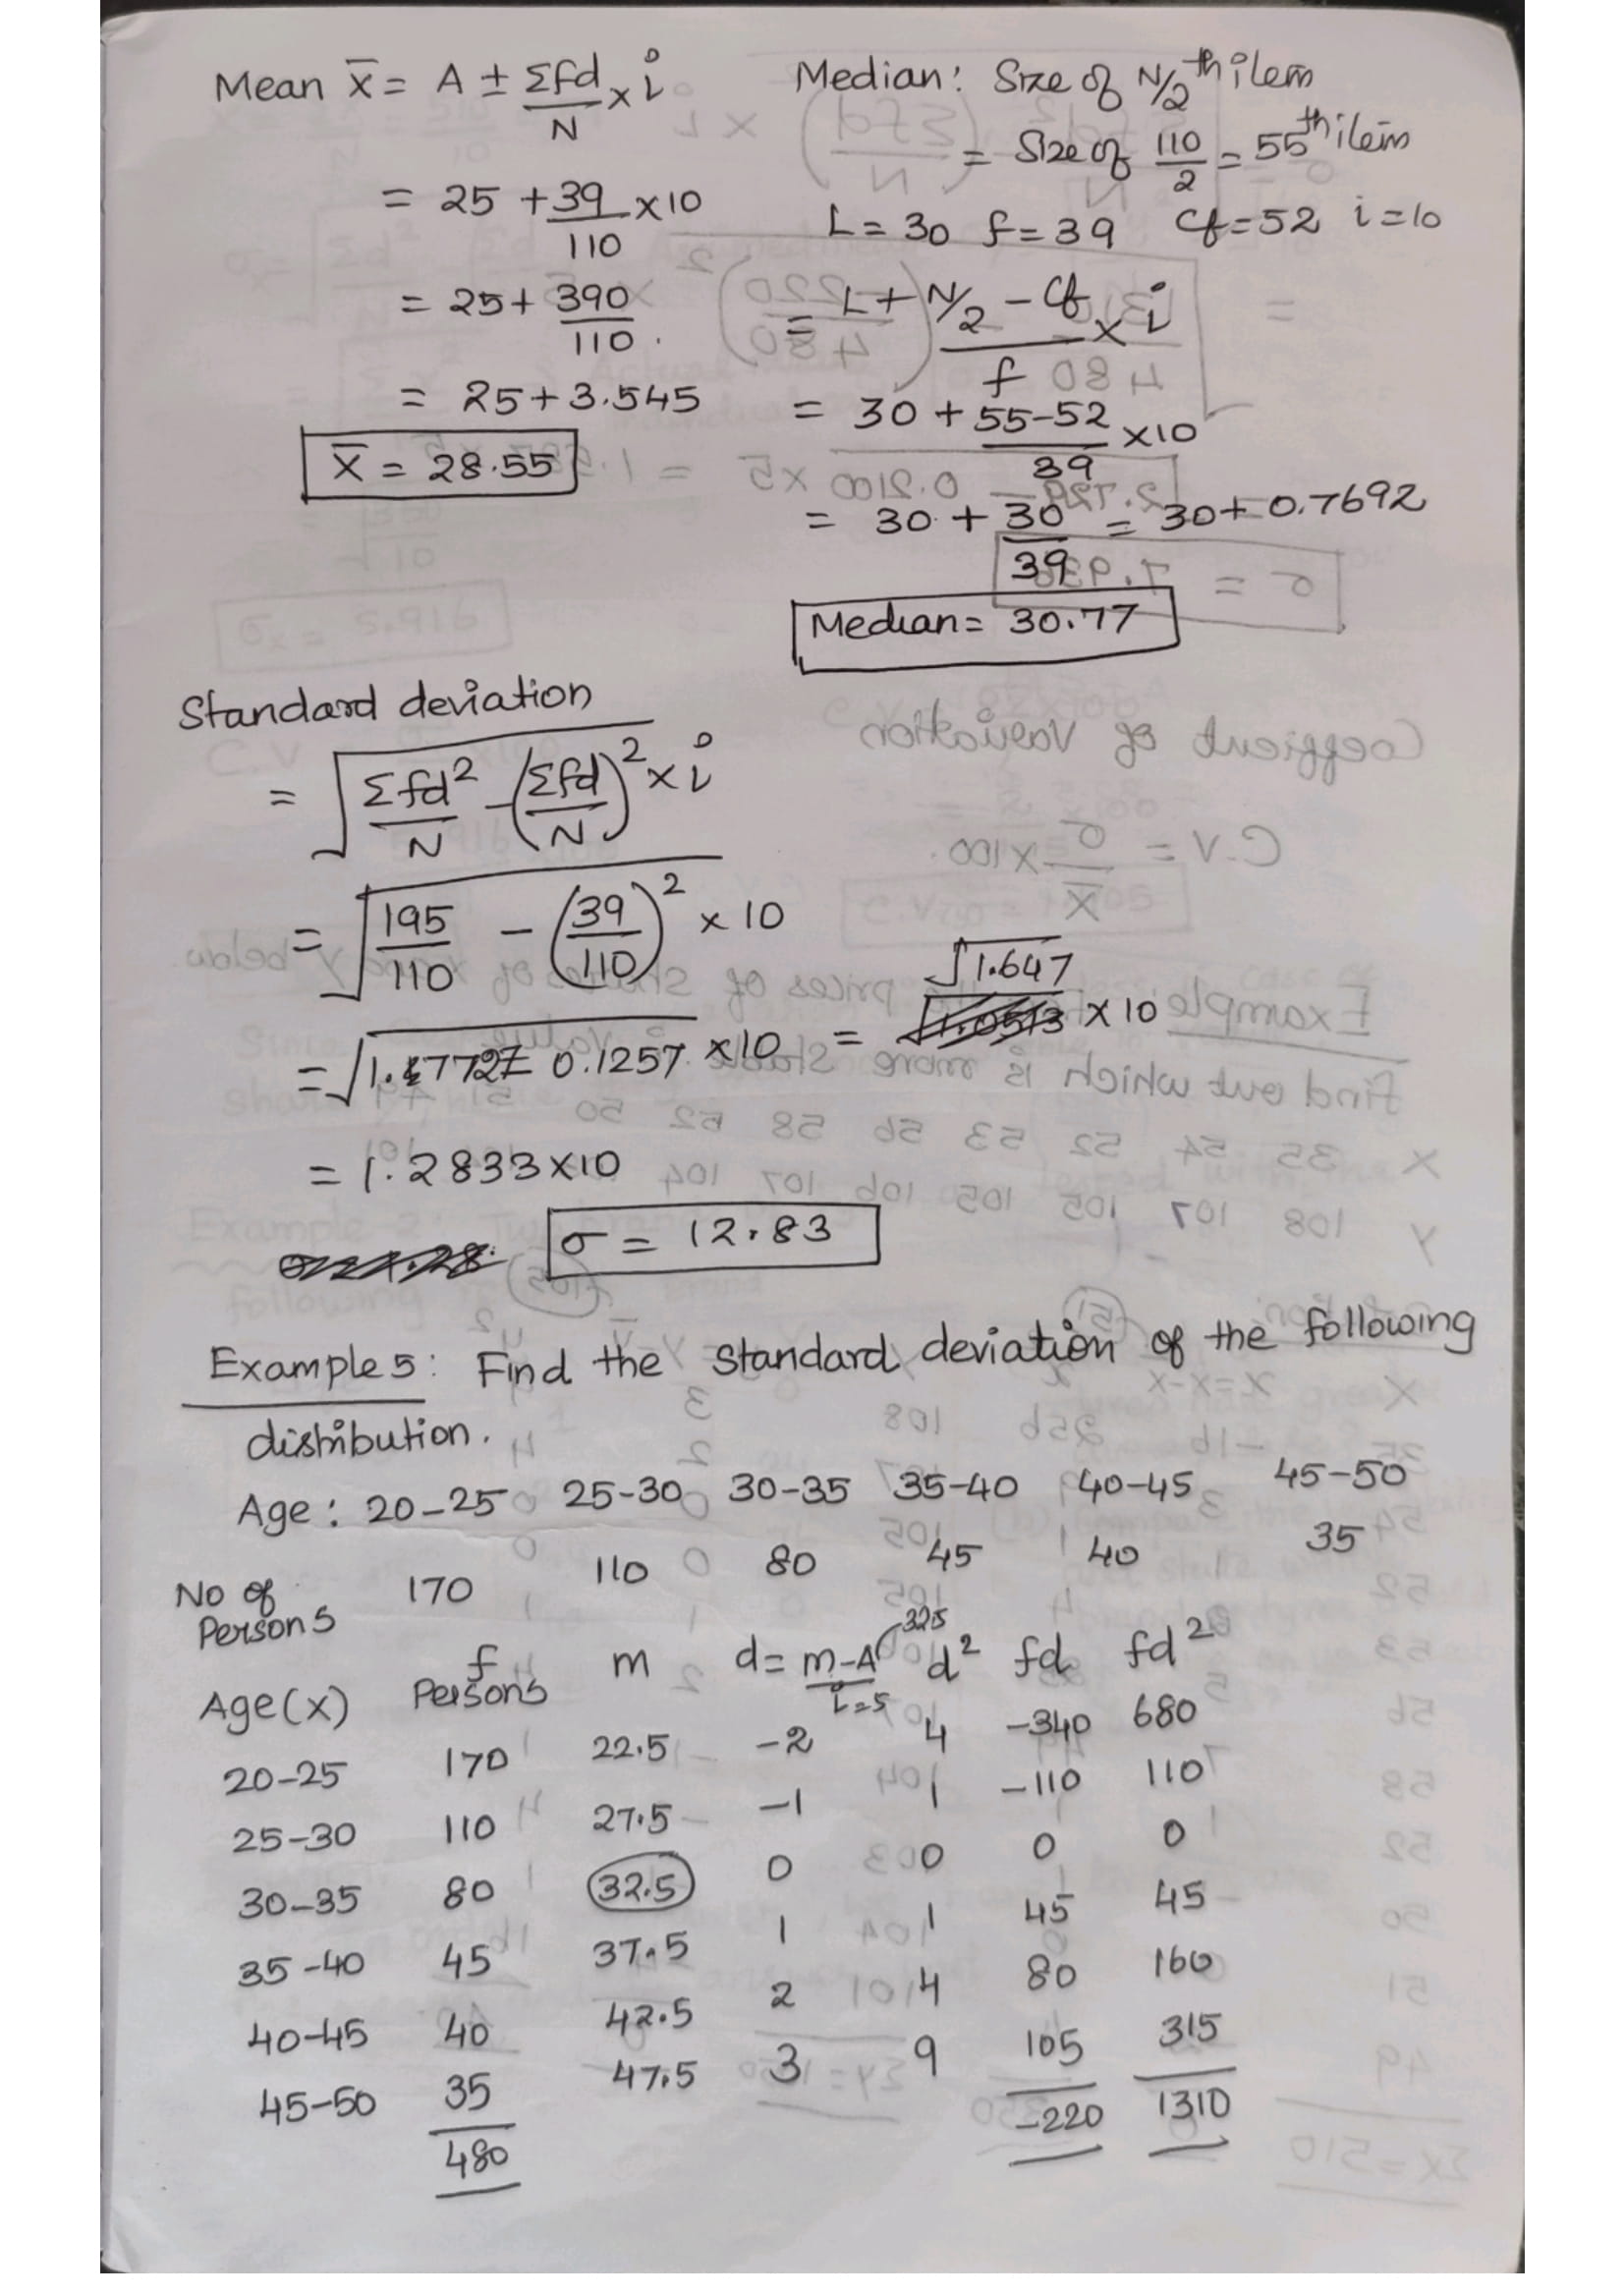 Mean x̄ = A ± Σfd/N × i
= 25 + 39/110 × 10
= 25 + 390/110
= 25 + 3.545
x̄ = 28.55
Median: Size of N/2 th item
= Size of 110/2 = 55th item
L = 30 f = 39 Cf = 52 i = 10
= L + N/2 - Cf/f × i
= 30 + 55-52/39 × 10
= 30 + 30/39 = 30 + 0.7692
Median = 30.77
Standard deviation
= √Σfd²/N - (Σfd/N)² × i
= √195/110 - (39/110)² × 10
= √1.7727 - 0.1257 × 10 = √1.647 × 10
= 1.2833 × 10
σ = 12.83
Example 5: Find the Standard deviation of the following
distribution.
Age: 20-25 25-30 30-35 35-40 40-45 45-50
No of Persons 170 110 80 45 40 35
Age(x) f Persons m d = m-A/i=5 32.5 d² fd fd²
20-25 170 22.5 -2 4 -340 680
25-30 110 27.5 -1 1 -110 110
30-35 80 32.5 0 0 0 0
35-40 45 37.5 1 1 45 45
40-45 40 42.5 2 4 80 160
45-50 35 47.5 3 9 105 315
480 -220 1310